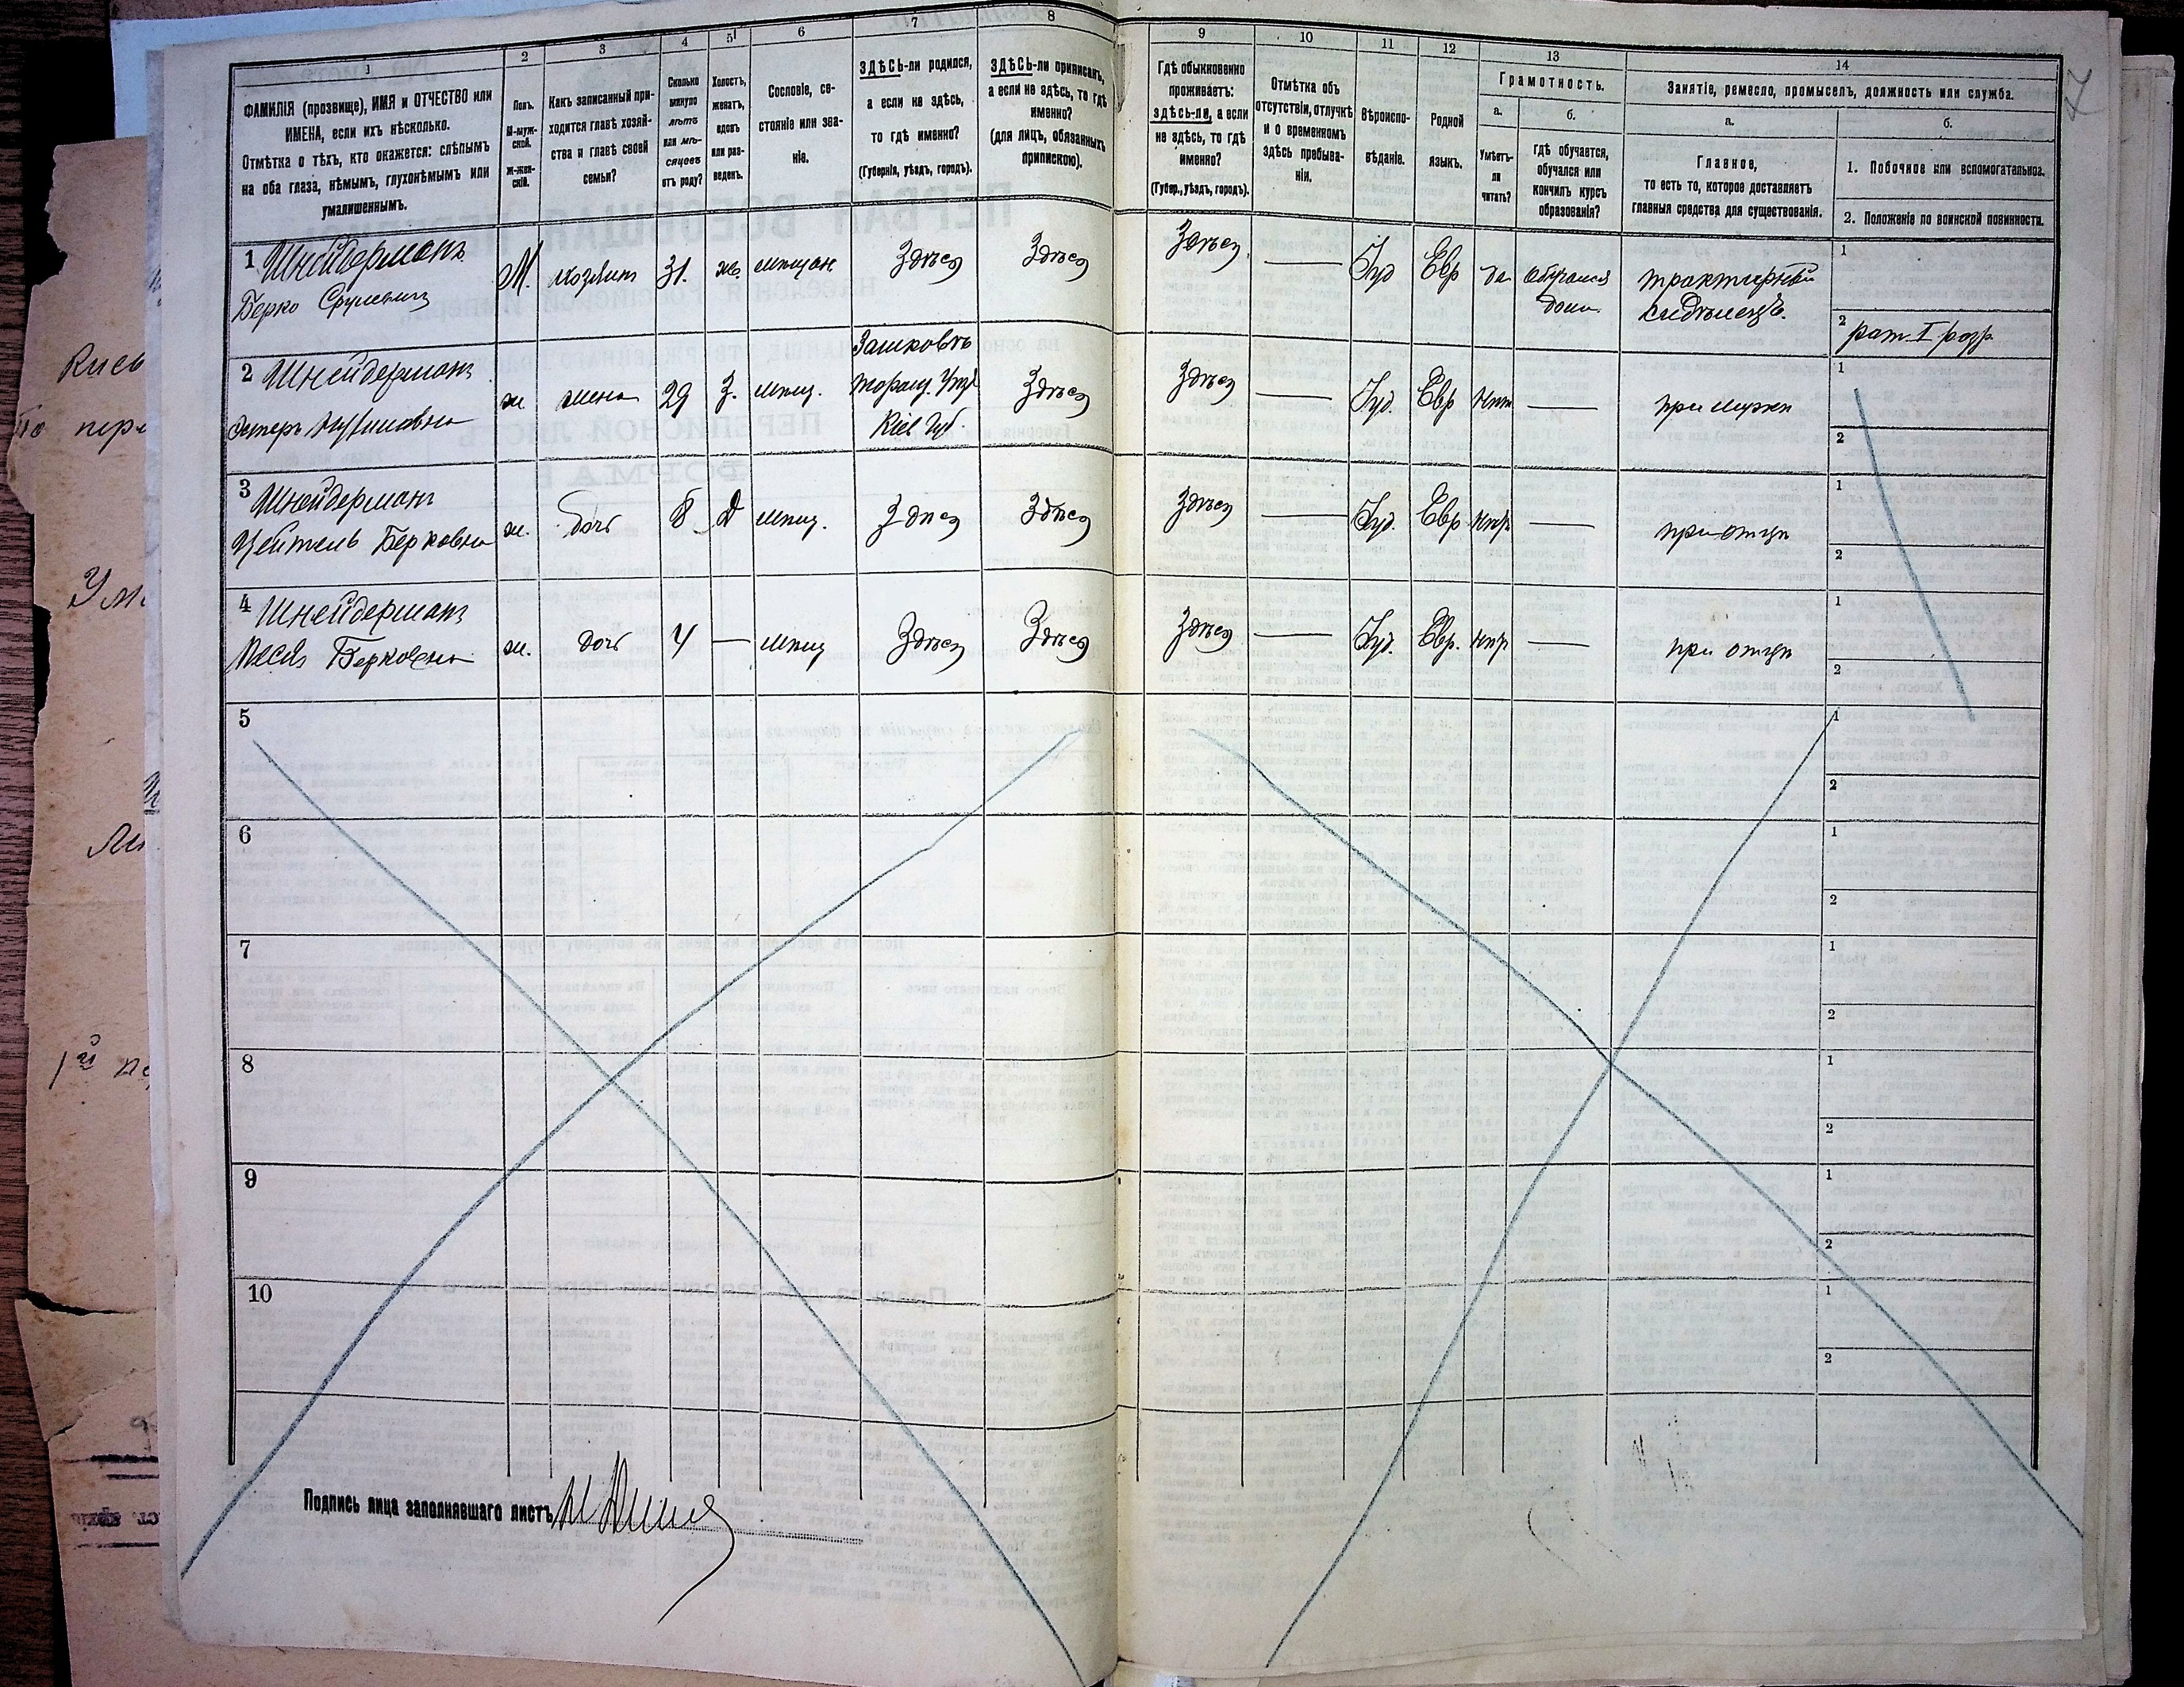 1
2
3
4
5
6
7
8
ФАМИЛІЯ (прозвище), ИМЯ и ОТЧЕСТВО или
ИМЕНА, если ихъ нѣсколько.
Отмѣтка о тѣхъ, кто окажется: слѣпымъ
на оба глаза, нѣмымъ, глухонѣмымъ или
умалишеннымъ.
Полъ.
М-муж-
ской.
Ж-жен-
скій.
Какъ записанный при-
ходится главѣ хозяй-
ства и главѣ своей
семьи?
Сколько
минуло
лѣтъ
или мѣ-
сяцевъ
отъ роду?
Холостъ,
женатъ,
вдовъ
или раз-
веденъ.
Сословіе, со-
стояніе или зва-
ніе.
ЗДѢСЬ-ли родился,
а если не здѣсь,
то гдѣ именно?
(Губернія, уѣздъ, городъ).
ЗДѢСЬ-ли приписанъ,
а если не здѣсь, то гдѣ
именно?
(для лицъ, обязанныхъ
припискою).
9
10
11
12
13
14
Гдѣ обыкновенно
проживаетъ:
ЗДѢСЬ-ли, а если
не здѣсь, то гдѣ
именно?
(Губер., уѣздъ, городъ).
Отмѣтка об
отсутствіи, отлучкѣ
и о временномъ
здѣсь пребыва-
ніи.
Вѣроиспо-
вѣданіе.
Родной
языкъ.
Грамотность.
а.
б.
Умѣетъ-
ли
читать?
Гдѣ обучается,
обучался или
кончилъ курсъ
образованія?
Занятіе, ремесло, промыселъ, должность или служба.
а.
б.
Главное,
то есть то, которое доставляетъ
главныя средства для существованія.
1. Побочное или вспомогательное.
2. Положеніе по воинской повинности.
7
1 Шнейдерманъ
Берко Срулевичъ
М. хозяинъ 31. же мещан Здѣсь Здѣсь
Здѣсь Іуд Евр да Обучался
дома
трактирный
сиделецъ.
1
2 рат. II разр
2 Шнейдерманъ
ж. жена 29 З. мещ.
Зашковъ
Таращ. Уѣзд
Кіев Губ.
Здѣсь
Здѣсь Іуд. Евр нѣт при мужѣ
1
2
3 Шнейдерманъ
Цейтель Берковна
ж. дочь 8 д мещ. Здѣсь Здѣсь
Здѣсь Іуд. Евр нѣт при отцѣ
1
2
4 Шнейдерманъ
Песя Берковна
ж. дочь 4 мещ Здѣсь Здѣсь
Здѣсь Іуд. Евр. нѣт при отцѣ
1
2
5
1
2
6
1
2
7
1
2
8
1
2
9
1
2
10
1
2
Подпись лица заполнявшаго листъ